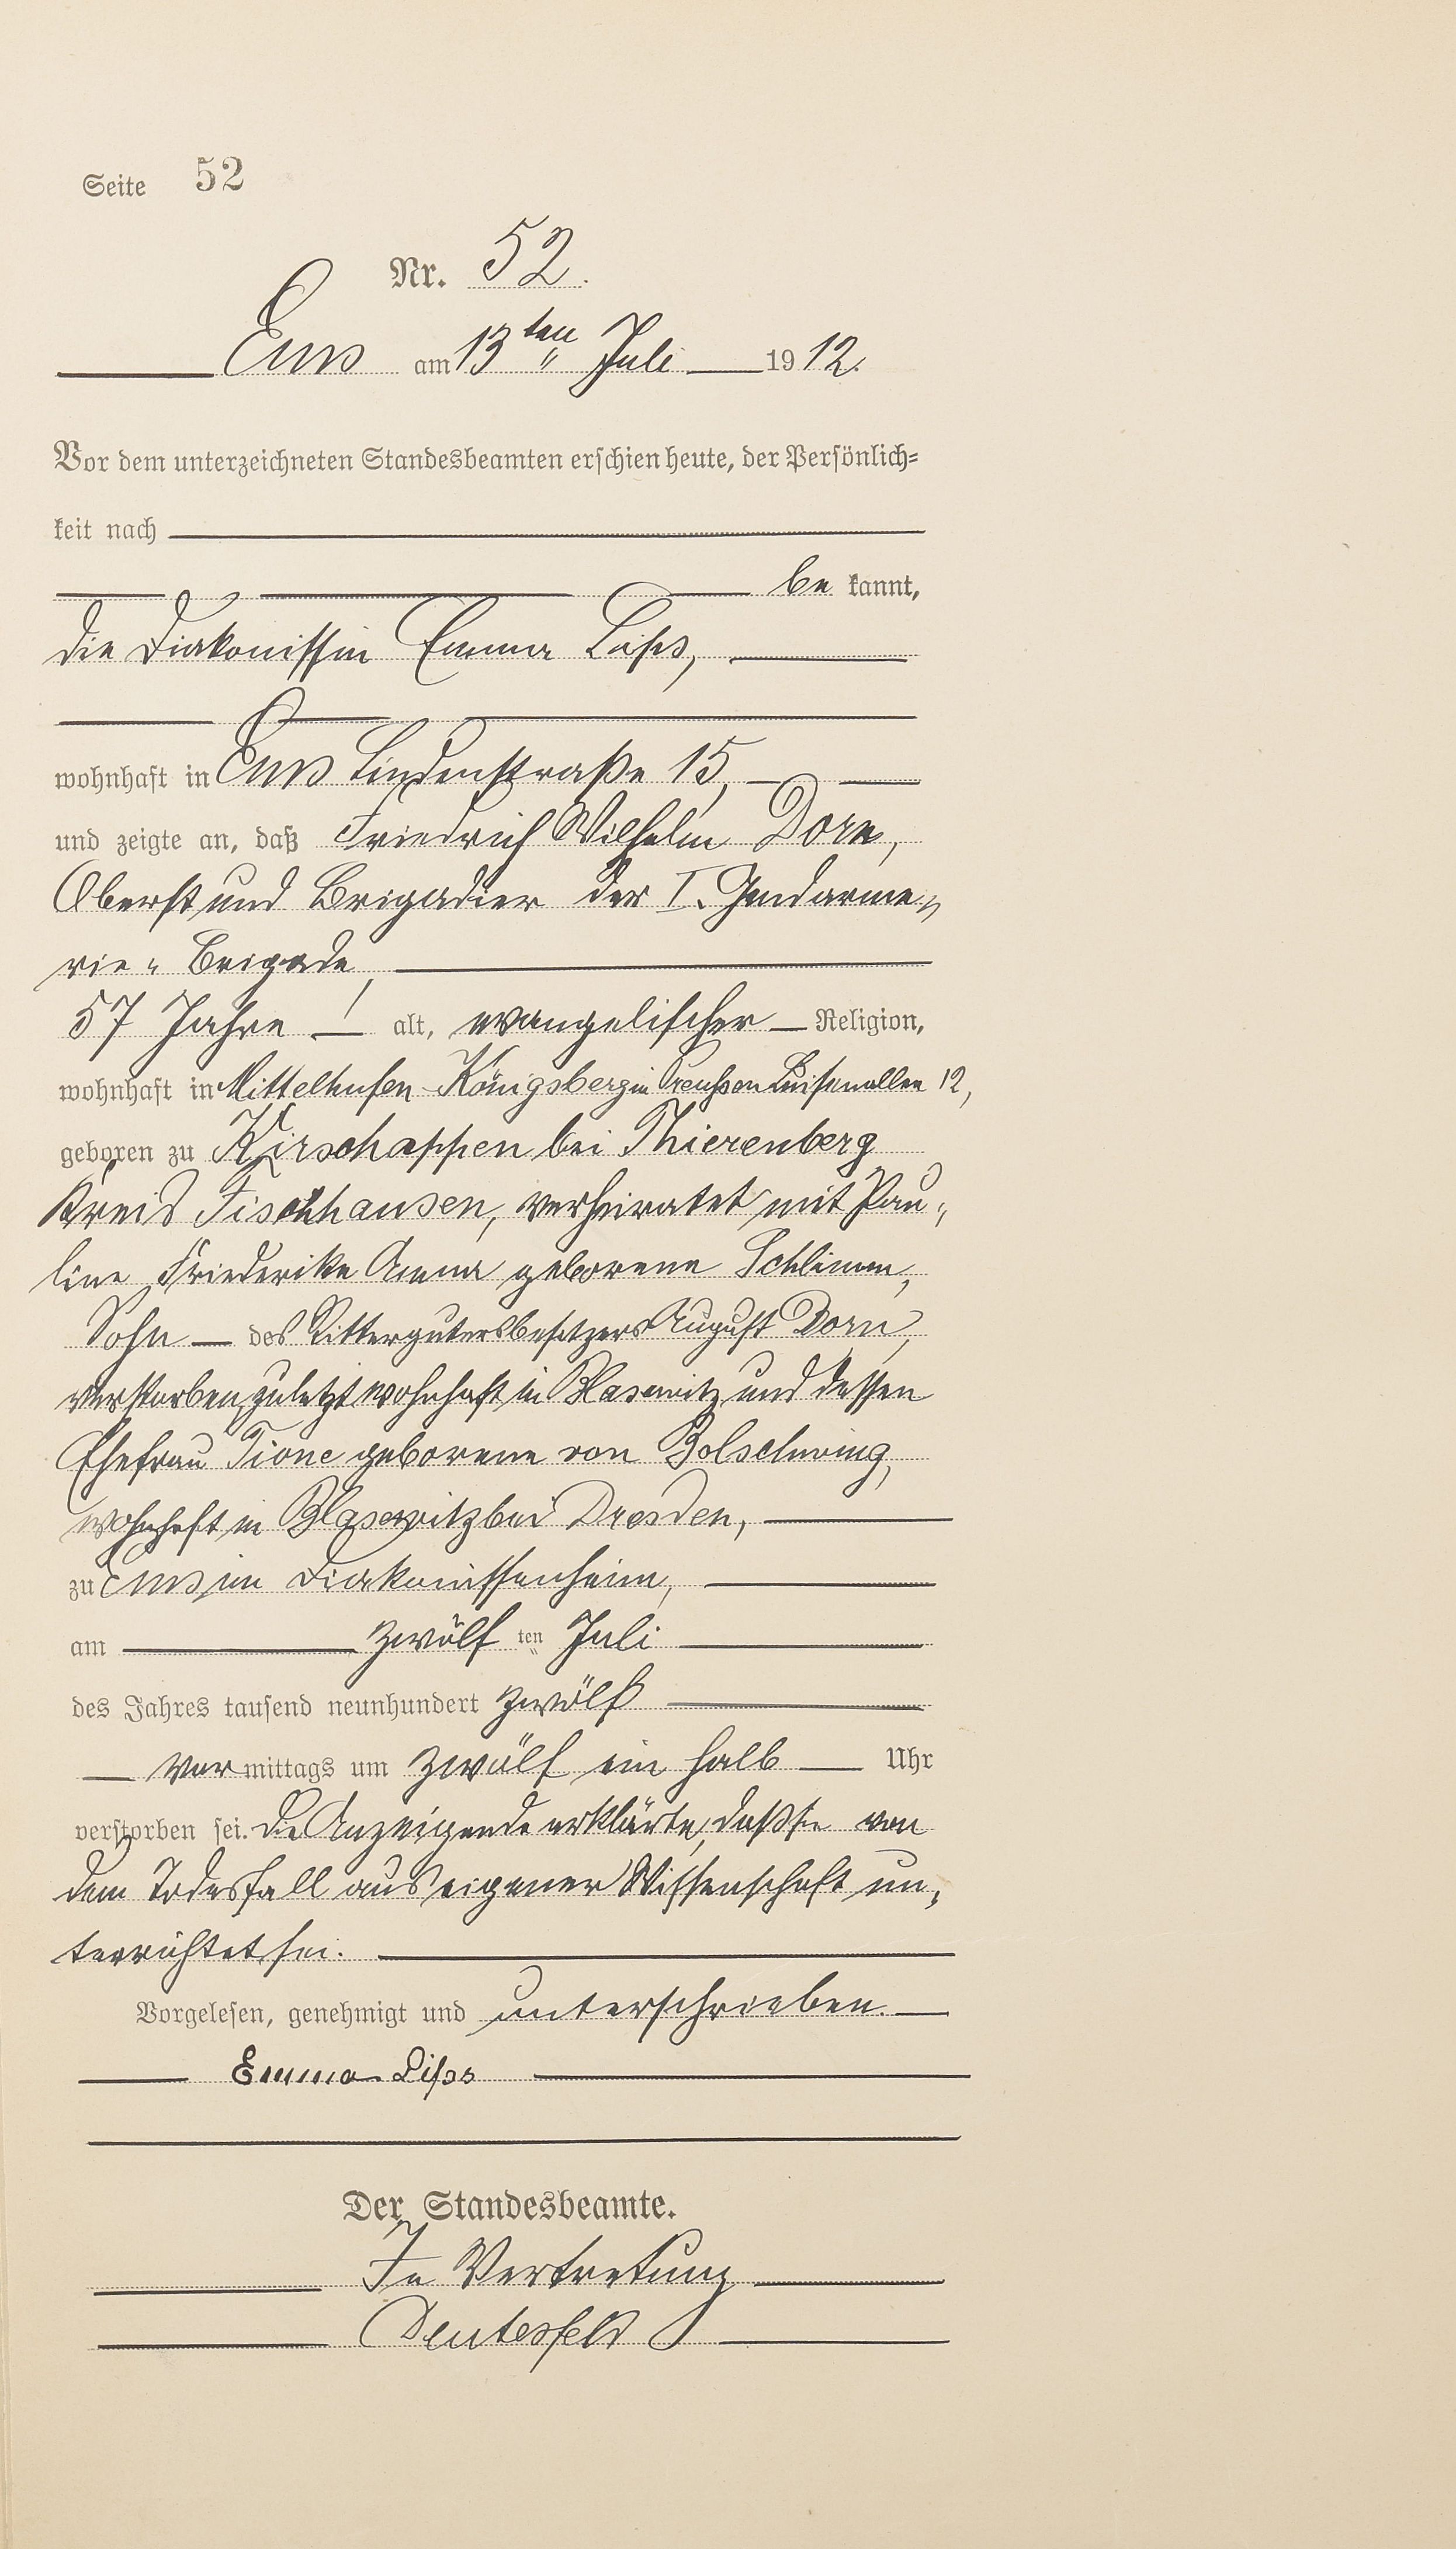 Seite 52
Nr. 52.
Ems am 13ten Juli 1912.
Vor dem unterzeichneten Standesbeamten erschien heute, der Persönlich-
keit nach
be kannt,
die Diakonissin Emma
wohnhaft in Ems Lindenstraße 15,
und zeigte an, daß Friedrich Wilhelm Dorn,
Oberst und Brigadier der I. Gendarme-
rie-Brigade,
57 Jahre alt, evangelischer Religion,
wohnhaft in Mittelhufen-Königsberg in Preußen Luisenallee 12,
geboren zu Kirschappen bei Thierenberg
Kreis Fischhausen, verheiratet mit Pau-
line Friederike Anna geborene Schlimm,
Sohn des Rittergutersbesitzers August Dorn,
verstorben, zuletzt wohnhaft in Blasewitz und dessen
Ehefrau Tione geborene von Bolschwing,
wohnhaft in Blasewitz bei Dresden,
zu Ems im Diakonissenheim,
am zwölf ten Juli
des Jahres tausend neunhundert zwölf
Vor mittags um zwölf ein halb Uhr
verstorben sei. Die Anzeigende erklärte, daß sie von
dem Todesfall aus eigener Wissenschaft un-
terrichtet sei.
Vorgelesen, genehmigt und unterschrieben.
Emma
Der Standesbeamte.
In Vertretung
Deutesfeld